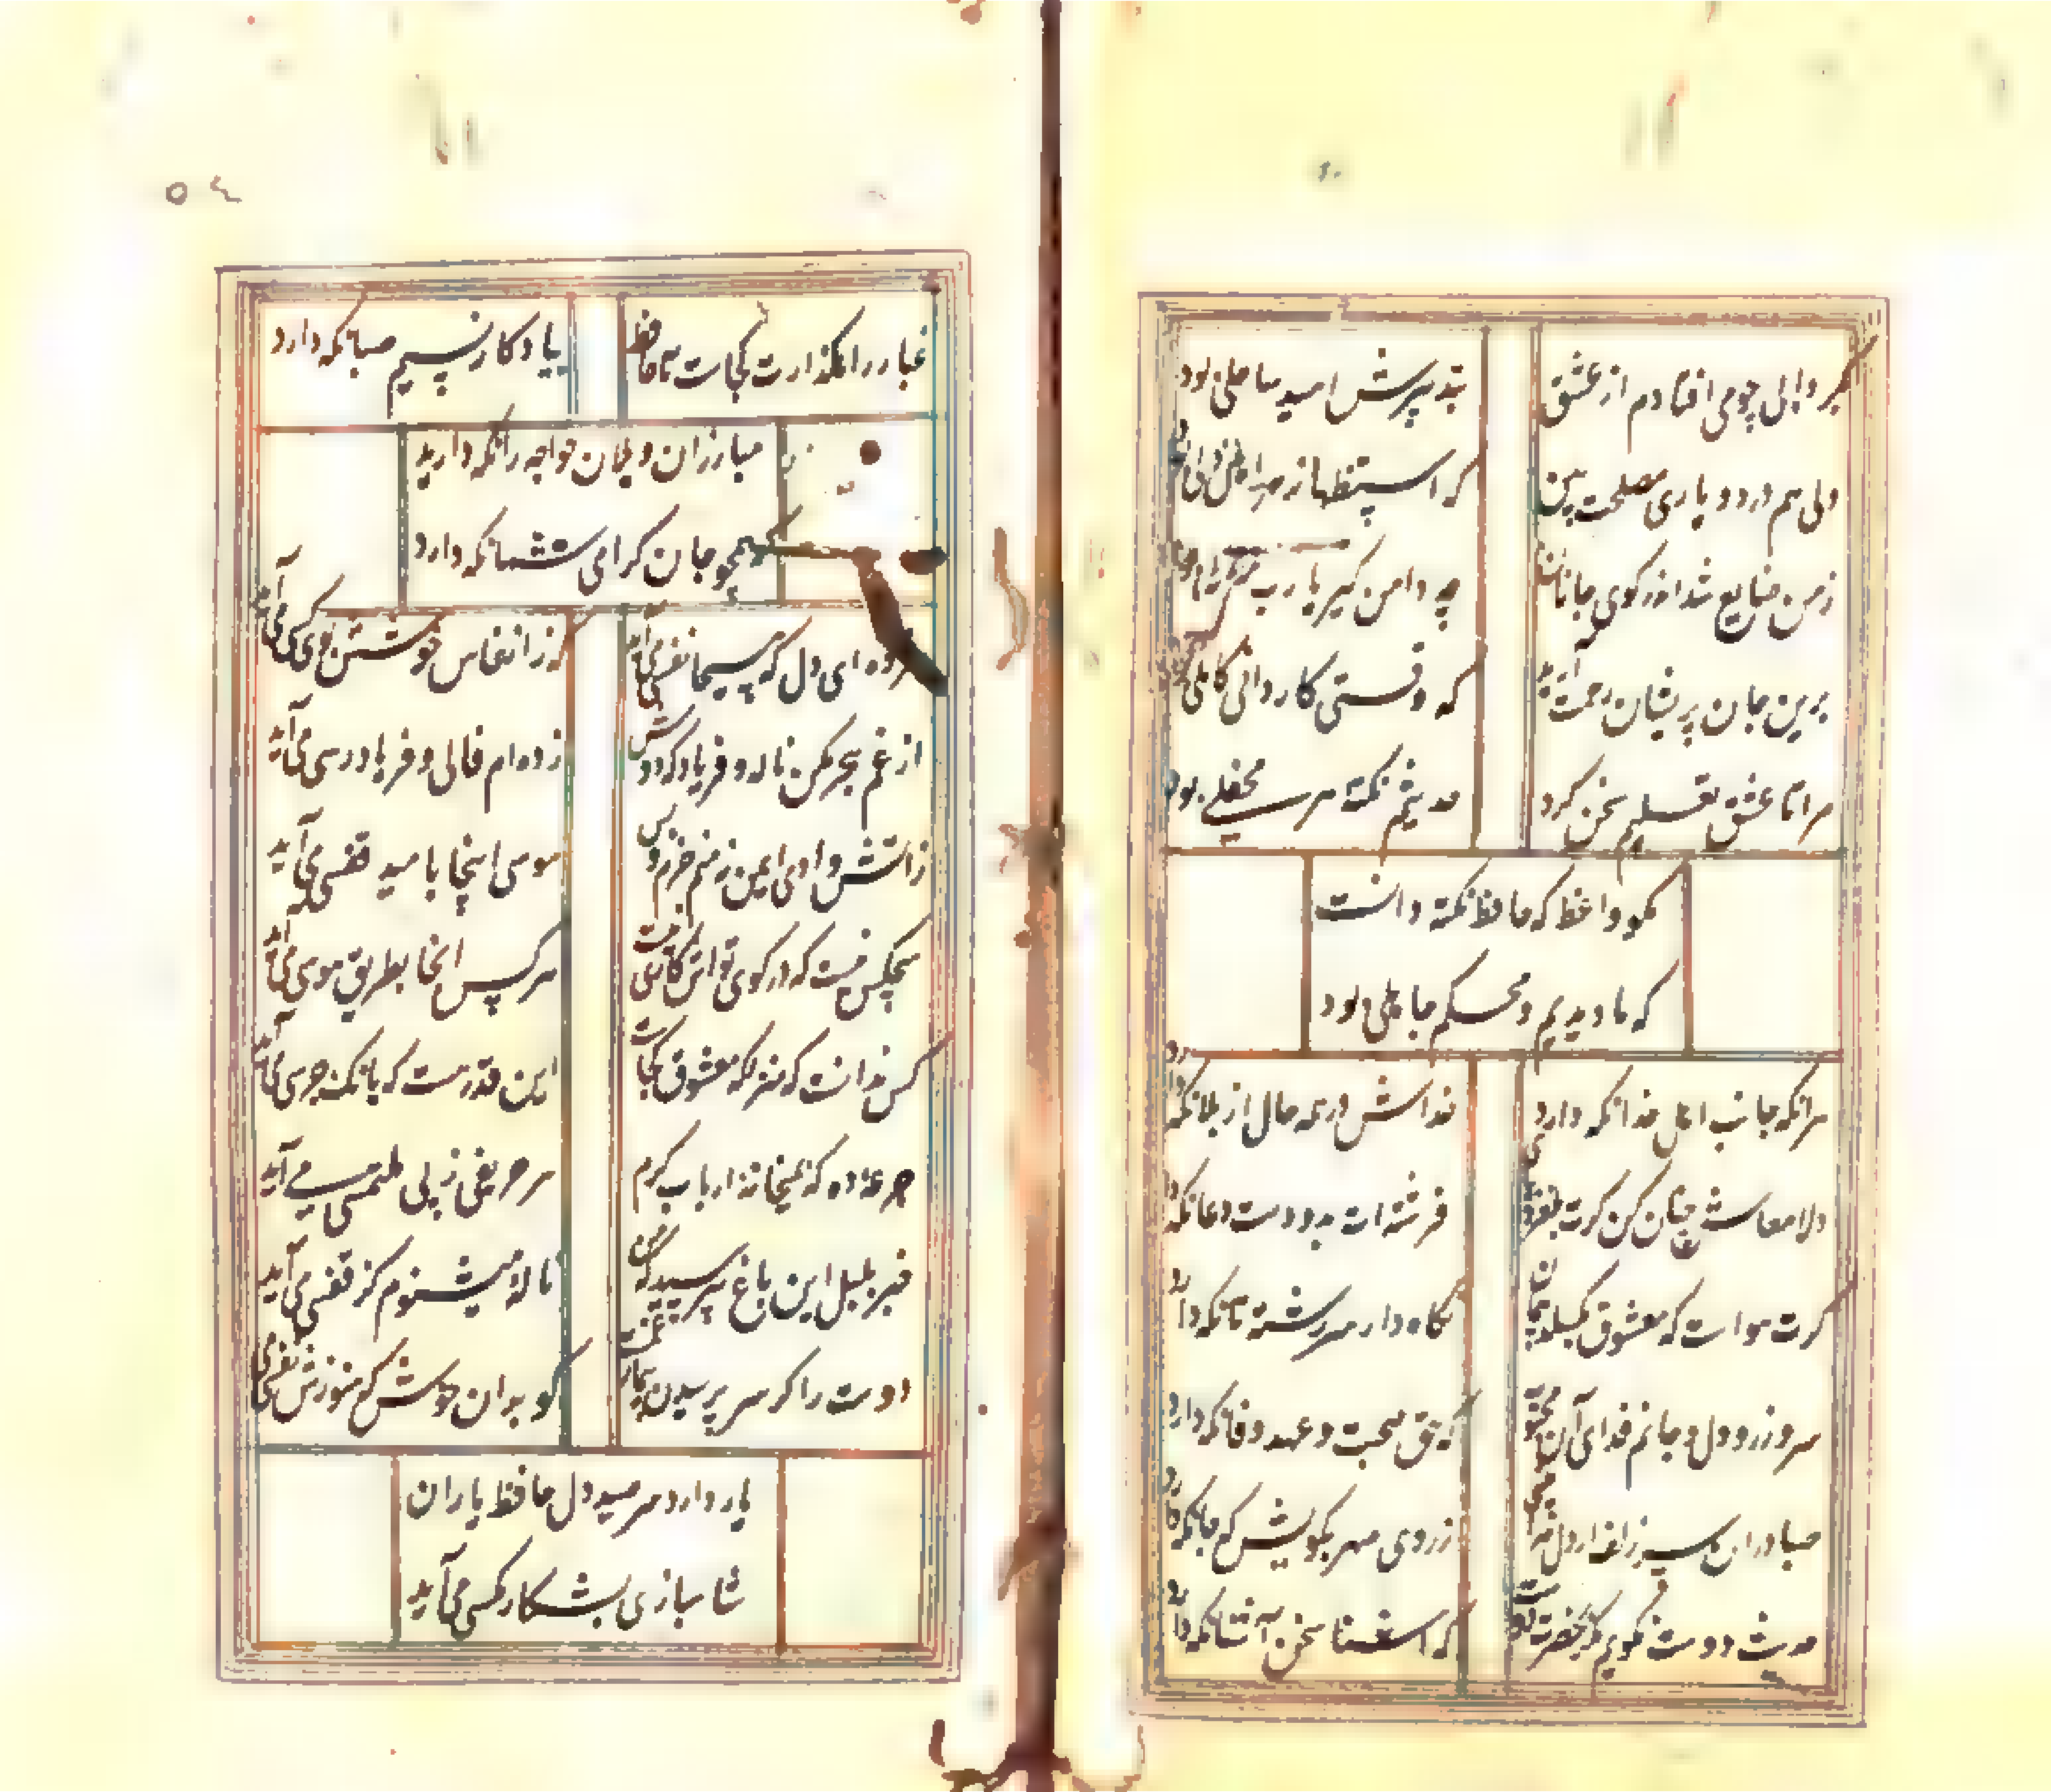 بگردابی چو می افتادم از عشق بتدبیرش امید ساحلی بود
دلی هم درد و یاری مصلحت بین که استظهار هر اهل دلی بود
ز من ضایع شد اندر کوی جانان چه دامن کیر یا رب منزلی بود
برین جان پریشان رحمت آرید که وقتی کاردانی کاملی بود
مرا تا عشق تعلیم سخن کرد حدیثم نکته هر محفلی بود
مکو واعظ که حافظ نکته دانست
که ما دیدیم و محکم جاهلی بود
هرانکه جانب اهل خدا نکه دارد خداش در همه حال از بلا نکه دارد
دلا معاش چنان کن کرت بلغزد پای فرشته ات بدو دست دعا نکه دارد
کرت هواست که معشوق نکسلد پیمان نکاه دار سر رشته تا نکه دارد
سر و زر و دل و جانم فدای آن محبوب که حق صحبت و عهد و وفا نکه دارد
صبا دران سر زلف ار دل مرا بینی ز روی مهر بکویش که جا نکه دارد
حدیث دوست نکویم مکر بحضرت دوست که آشنا سخن آشنا نکه دارد
غبار راهکذارت کجاست تا حافظ بیادکار نسیم صبا نکه دارد
مبارزان و یلان خواجه را نکه دارید
که همچو جان کرامی شما نکه دارد
مژده ای دل که مسیحا نفسی می آید که ز انفاس خوشش بوی کسی می آید
از غم هجر مکن ناله و فریاد که دوش زده ام فالی و فریادرسی می آید
ز آتش وادی ایمن نه منم خرم و بس موسی اینجا بامید قبسی می آید
هیچکس نیست که در کوی تو اش کاری نیست هر کس اینجا بطریق هوسی می آید
کس ندانست که منزلکه معشوق کجاست این قدر هست که بانک جرسی می آید
جرعه ده که بمیخانه ارباب کرم هر حریفی ز پی ملتمسی می آید
خبر بلبل این باغ بپرسید که من ناله میشنوم کز قفسی می آید
دوست را کر سر پرسیدن بیمار غمست کو بدان خوش که هنوزش نفسی می آید
یار دارد سر صید دل حافظ یاران
شاهبازی بشکار مکسی می آید